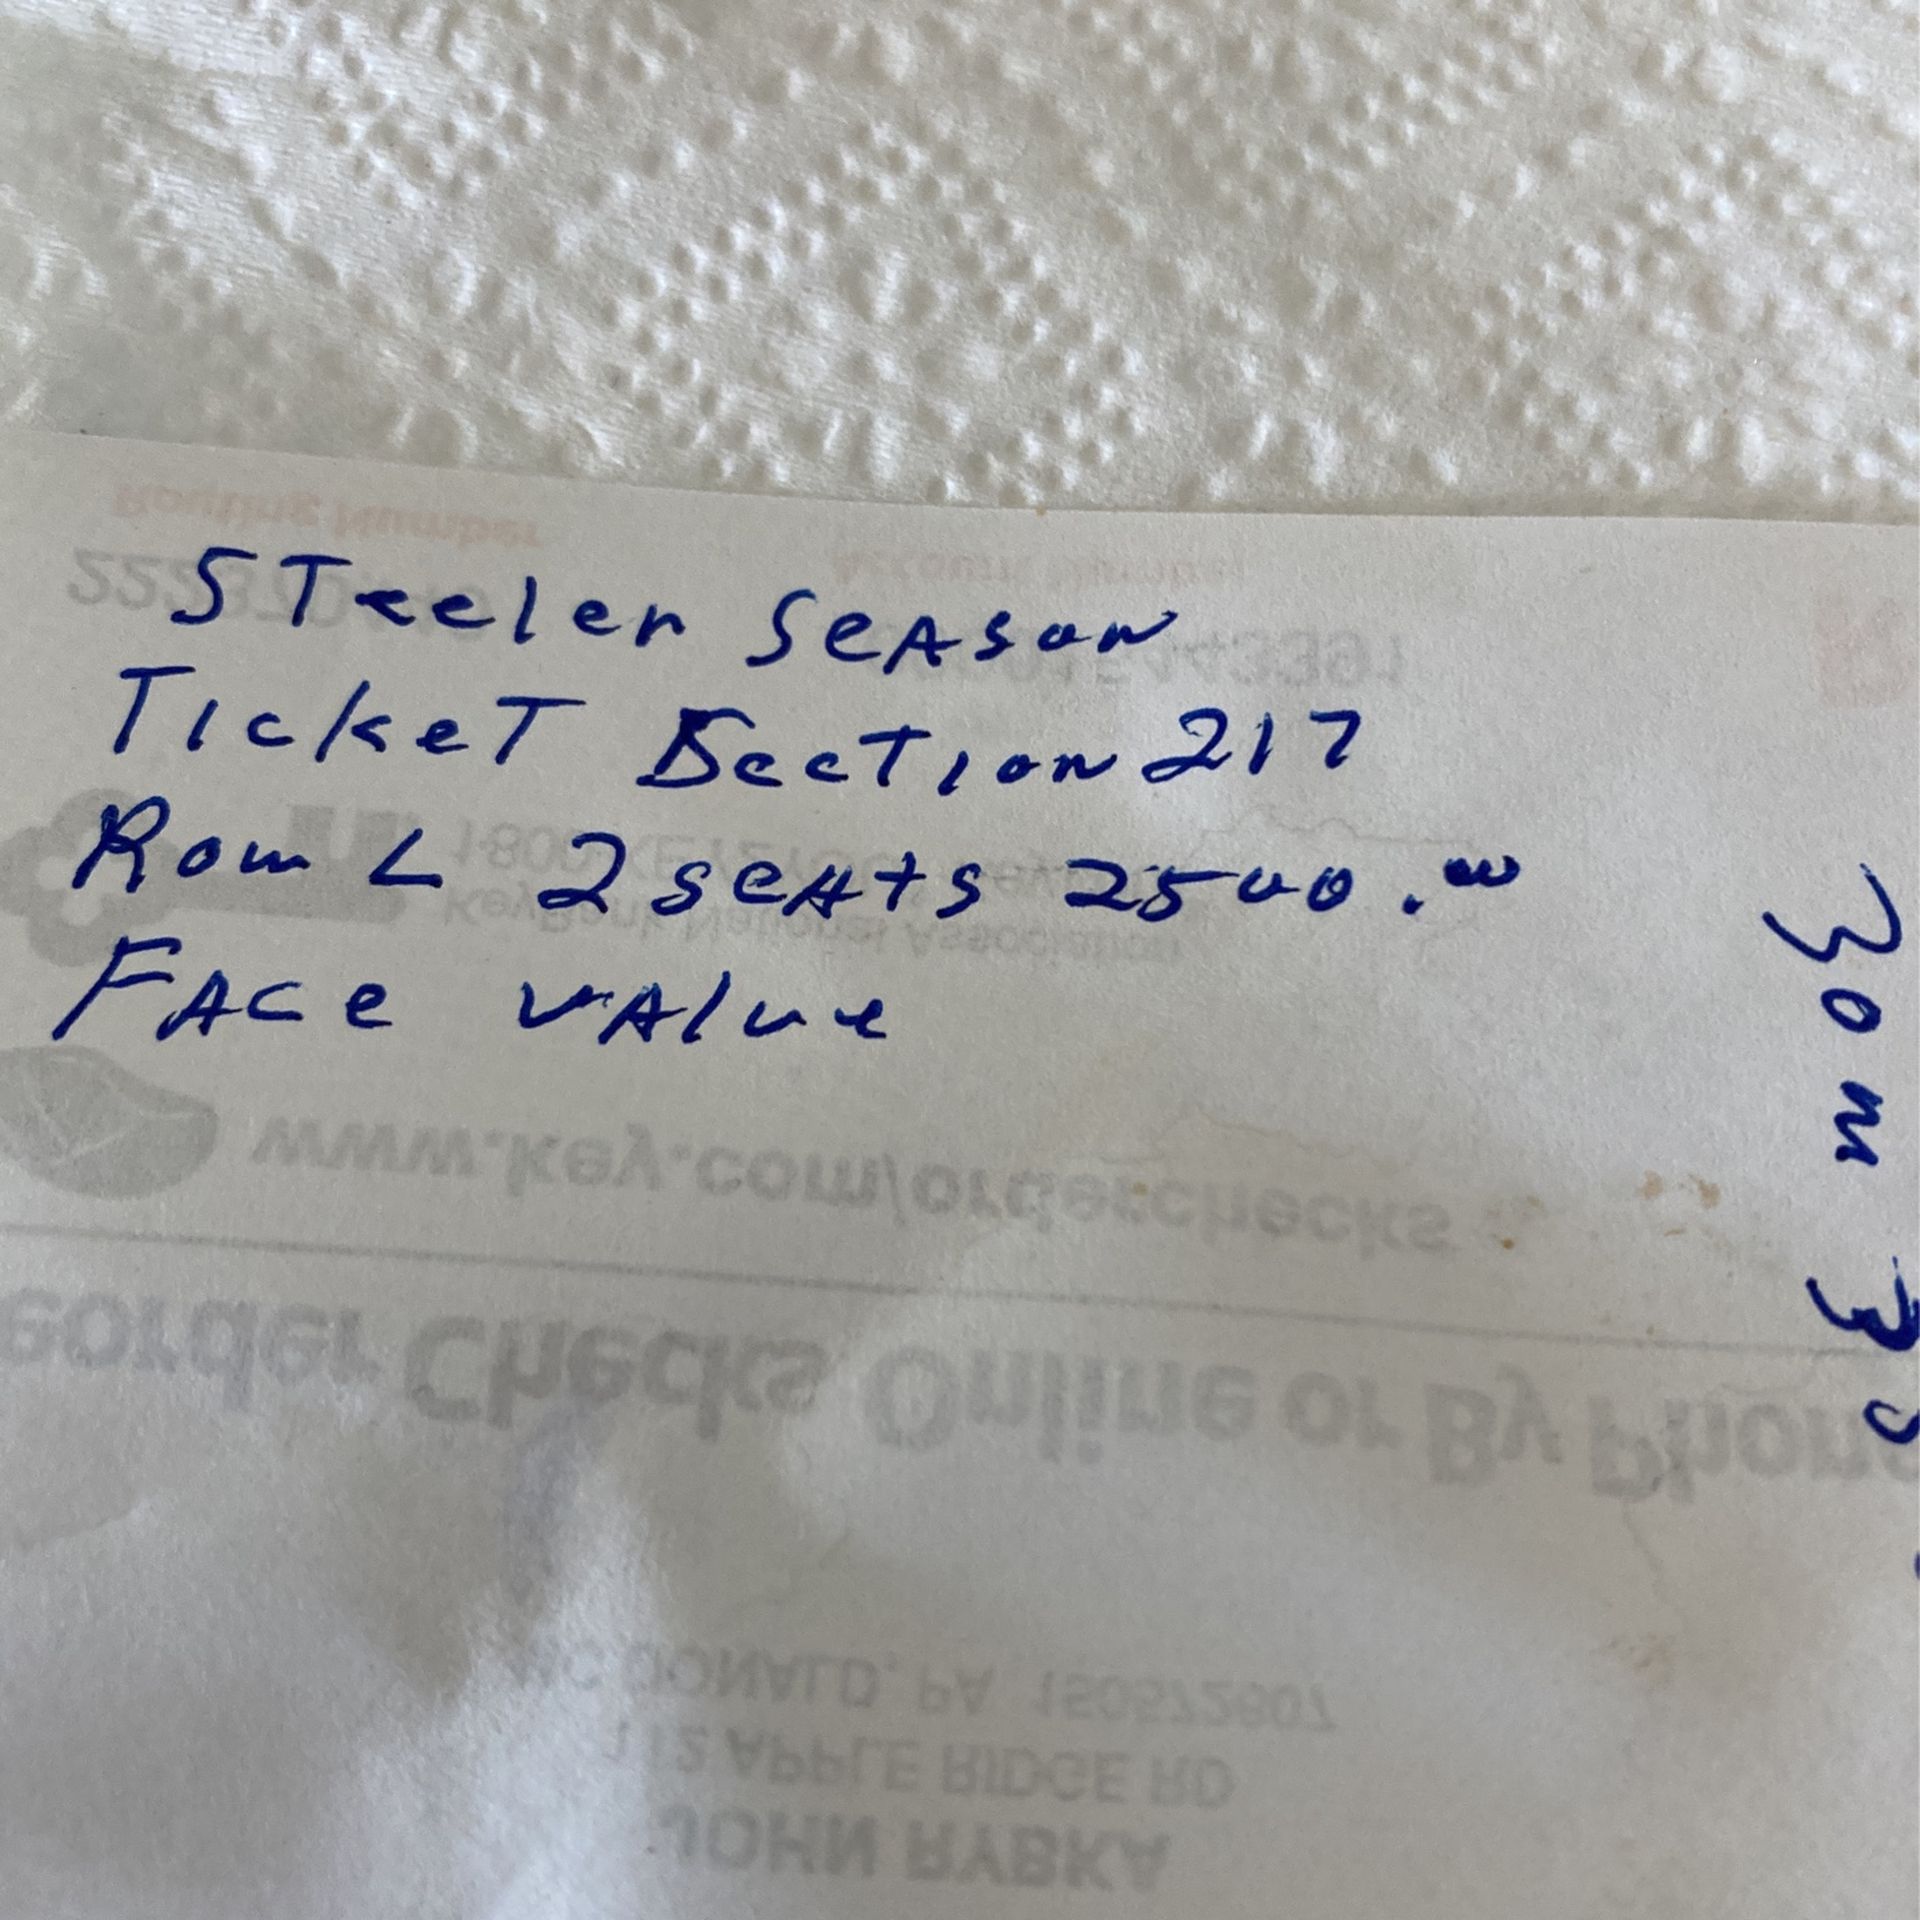 Routing Number
Account Number
STeeler SeAson
TickeT SecTion 217
Row L 2 seAts 2500.00
KeyBank National Association
FAce vAlue
www.key.com/orderchecks
eorder Checks Online or By Phone
DONALD, PA 150572607
112 APPLE RIDGE RD
JOHN RYBKA